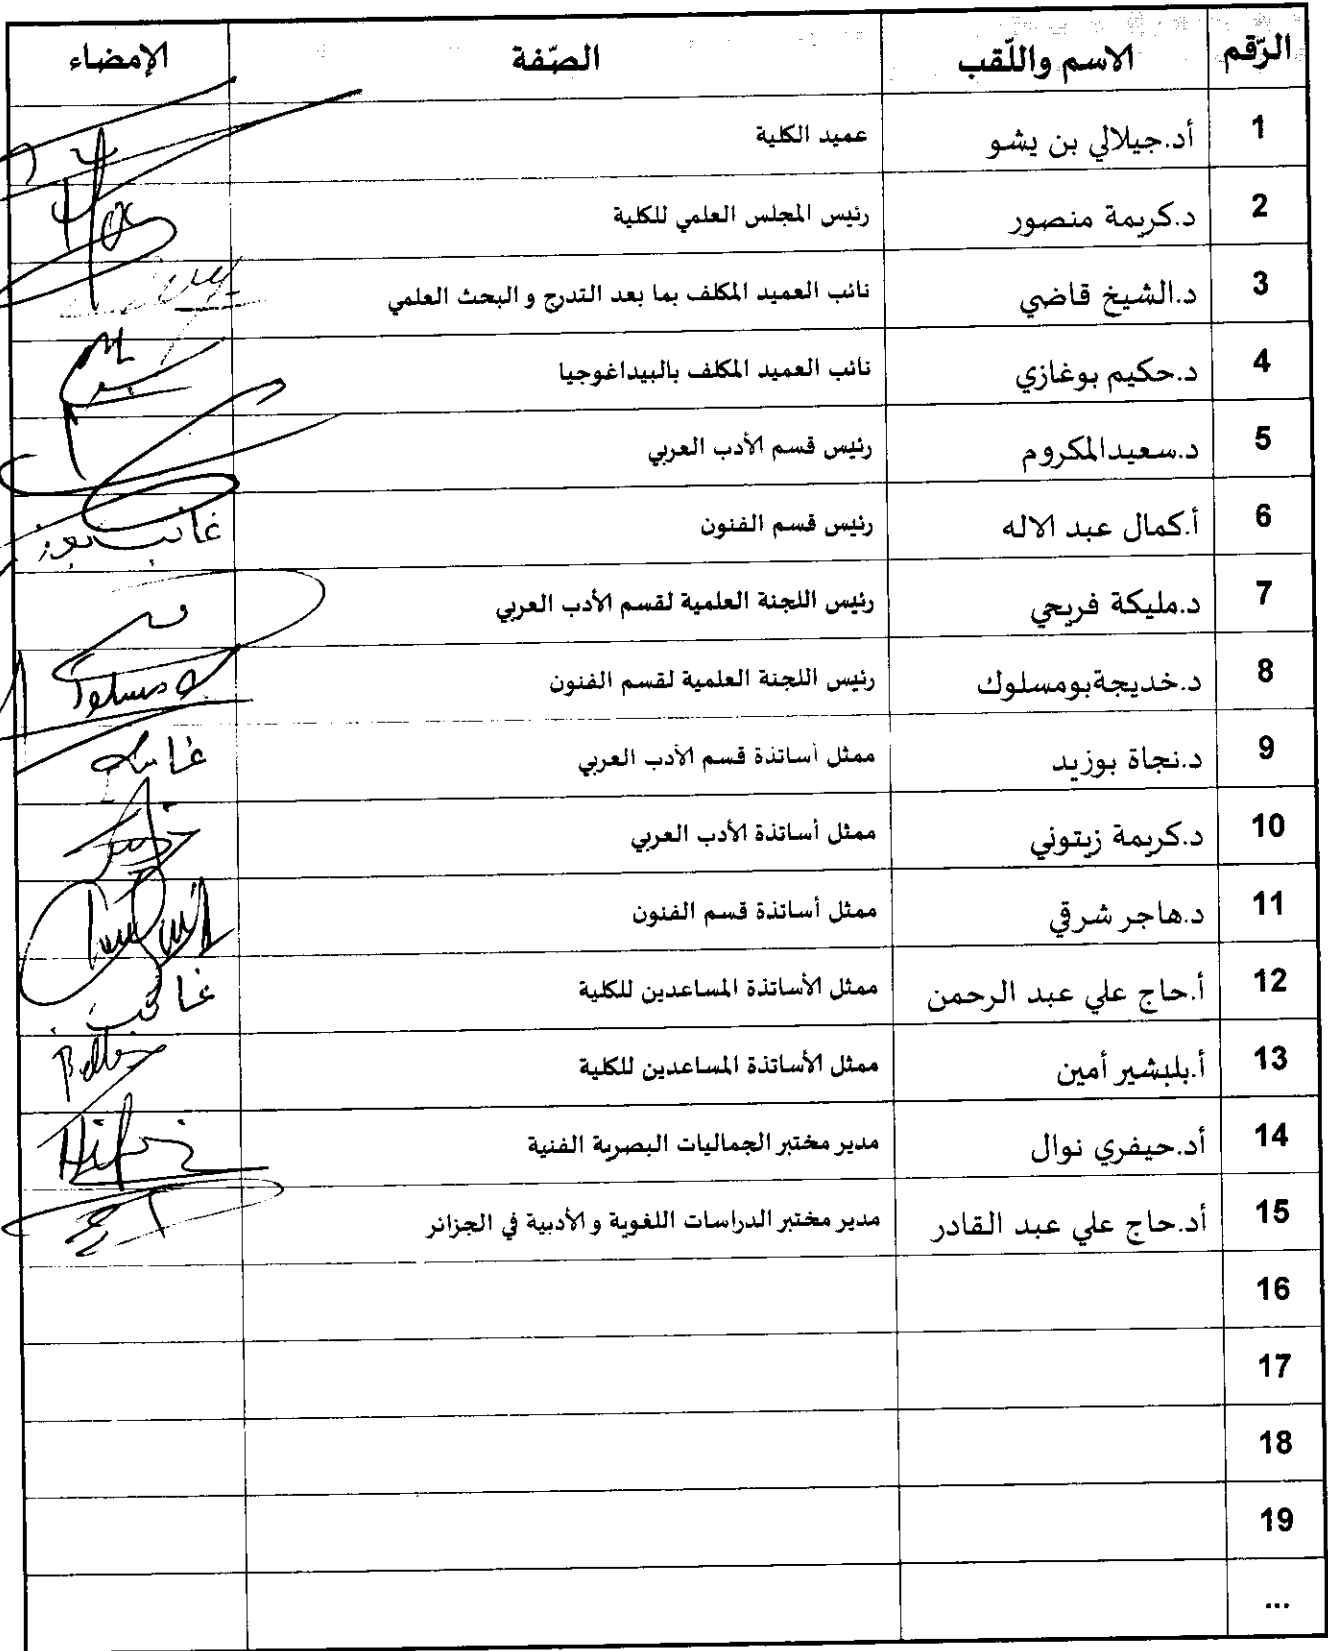 الرّقم الاسم واللّقب الصّفة الإمضاء
1 أد.جيلالي بن يشو عميد الكلية
2 د.كريمة منصور رئيس المجلس العلمي للكلية
3 د.الشيخ قاضي نائب العميد المكلف بما بعد التدرج و البحث العلمي
4 د.حكيم بوغازي نائب العميد المكلف بالبيداغوجيا
5 د.سعيدالمكروم رئيس قسم الأدب العربي
6 أ.كمال عبد الاله رئيس قسم الفنون غائب
7 د.مليكة فريحي رئيس اللجنة العلمية لقسم الأدب العربي
8 د.خديجةبومسلوك رئيس اللجنة العلمية لقسم الفنون
9 د.نجاة بوزيد ممثل أساتذة قسم الأدب العربي
10 د.كريمة زيتوني ممثل أساتذة الأدب العربي
11 د.هاجر شرقي ممثل أساتذة قسم الفنون
12 أ.حاج علي عبد الرحمن ممثل الأساتذة المساعدين للكلية غائب
13 أ.بلبشير أمين ممثل الأساتذة المساعدين للكلية
14 أد.حيفري نوال مدير مختبر الجماليات البصرية الفنية
15 أد.حاج علي عبد القادر مدير مختبر الدراسات اللغوية و الأدبية في الجزائر
16
17
18
19
...